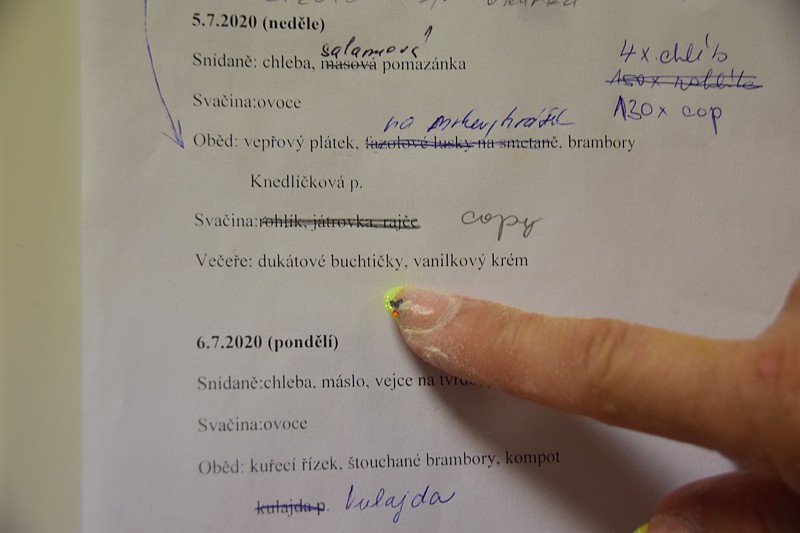 5.7.2020 (neděle)
salamová
Snídaně: chleba, masová pomazánka
4x chlíb
Svačina:ovoce
130x cop
na mrkev, hrášk
Oběd: vepřový plátek, fazolové lusky na smetaně, brambory
Knedlíčková p.
Svačina:rohlík, játrovka, rajče copy
Večeře: dukátové buchtičky, vanilkový krém
6.7.2020 (pondělí)
Snídaně:chleba, máslo, vejce na
Svačina:ovoce
Oběd: kuřecí řízek, šťouchané brambory, kompot
kulajda p. kulajda